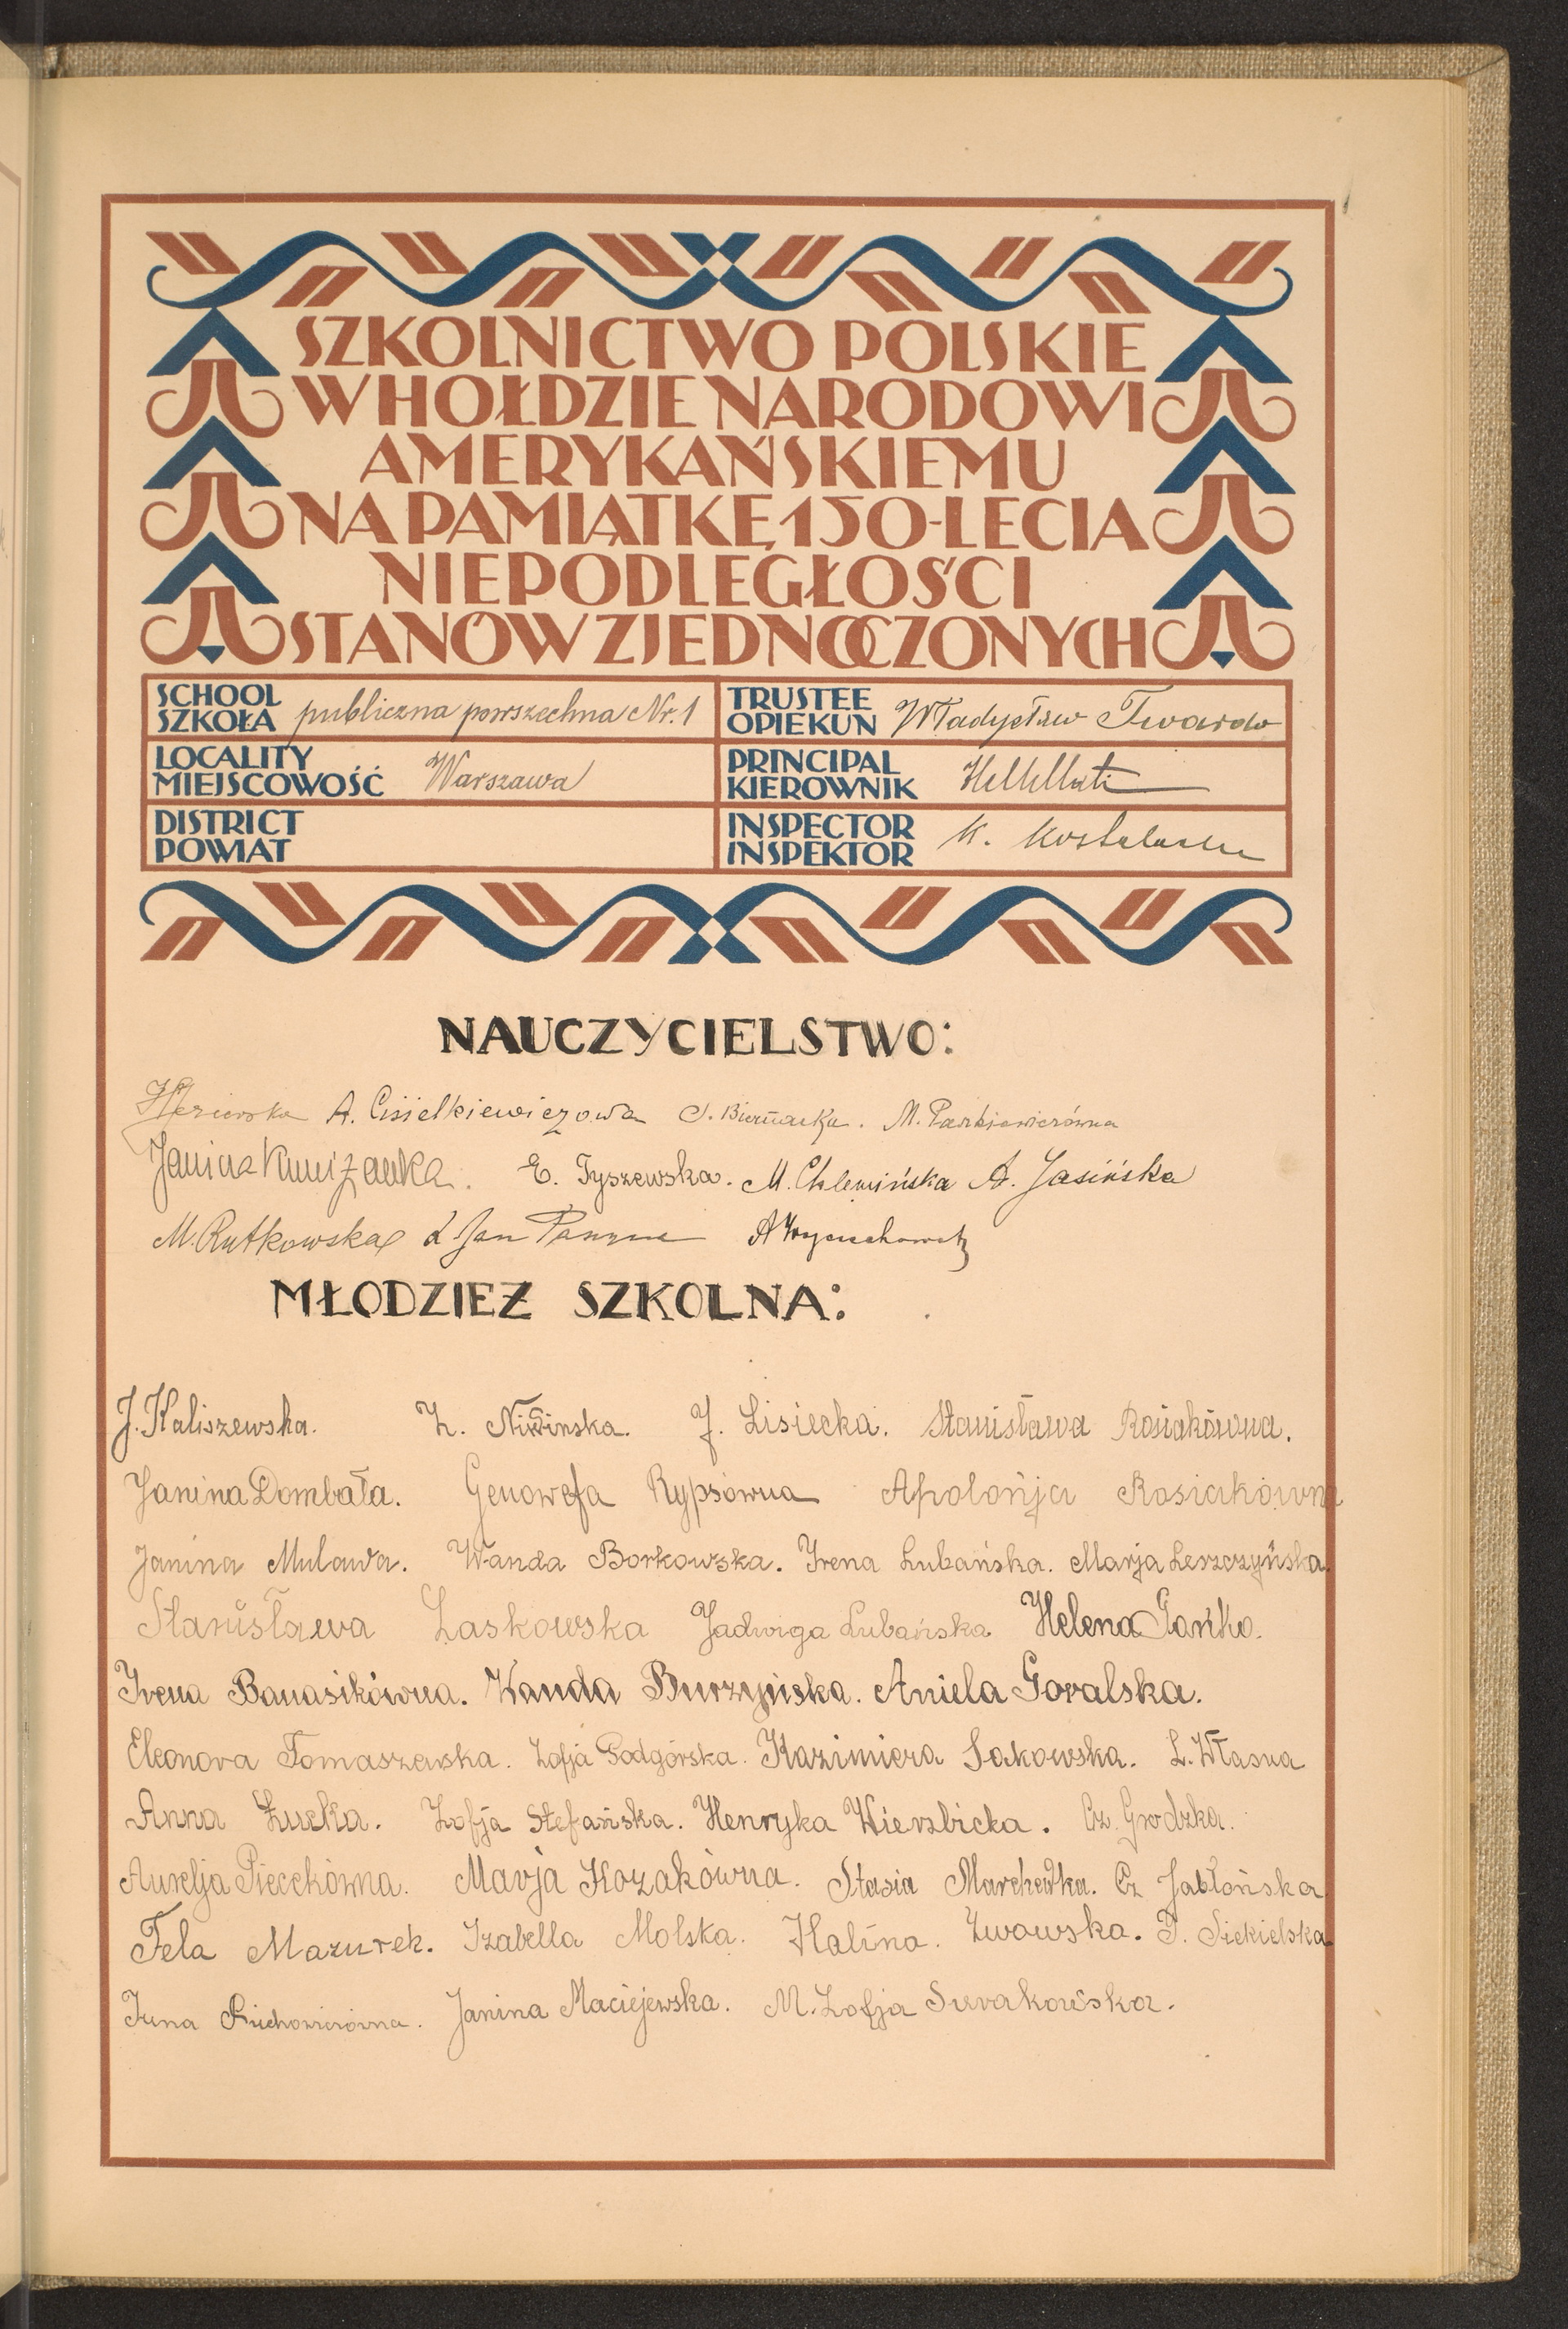 SZKOLNICTWO POLSKIE
W HOŁDZIE NARODOWI
AMERYKAŃSKIEMU
NA PAMIĄTKĘ 150-LECIA
NIEPODLEGŁOŚCI
STANÓW ZJEDNOCZONYCH
SCHOOL
SZKOŁA publiczna powszechna Nr. 1
TRUSTEE
OPIEKUN Władysław Twardo
LOCALITY
MIEJSCOWOŚĆ Warszawa
PRINCIPAL
KIEROWNIK
DISTRICT
POWIAT
INSPECTOR
INSPEKTOR K.
NAUCZYCIELSTWO:
A. Cisielkiewiczowa S. Biernacka. M.
Janina E. Tyszewska. M. Chlewińska A. Jasińska
M. Rutkowska Jan
MŁODZIEŻ SZKOLNA:
J. Kaliszewska. Z. Niwinska. J. Lisiecka. Stanisława Rosiakówna.
Janina Dombała. Genowefa Rypsówna Apolońja Rosiakówna
Janina Mulawa. Wanda Borkowska. Irena Lubańska. Marja Leszczyńska.
Stanisława Laskowska Jadwiga Lubańska Helena Gańko.
Irena Banasikówna. Wanda Burzyńska. Aniela Goralska.
Eleonora Tomaszewska. Zofja Podgórska. Kazimiera Sakowska. L. Własna
Anna Łucka. Zofja Stefańska. Henryka Wierzbicka. Cz. Grodzka.
Aurelja Piecekówna. Marja Kozakówna. Stasia Marchewka. Cz Jabłońska
Fela Mazurek. Izabella Molska. Halina. Lwowska. P. Siekielska
Janina Maciejewska. M. Zofja